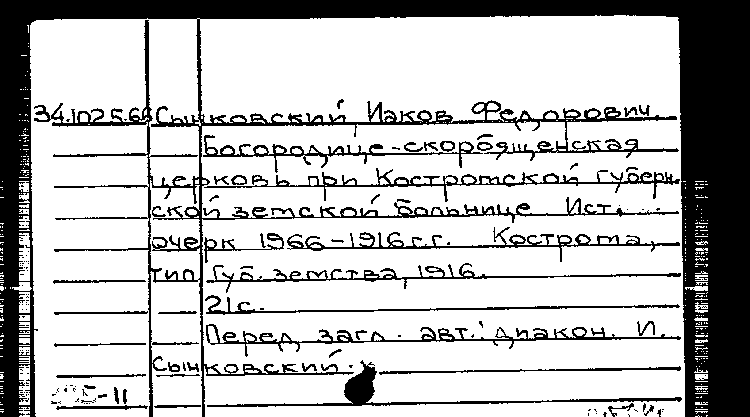 34.102 5.66 Сынковский, Иаков Федорович.
Богородице-скорбященская
церковь при Костромской губерн-
ской земской больнице. Ист.
очерк 1966-1916 г.г. Кострома,
тип. Губ. земства, 1916.
21 с.
Перед загл. авт.: диакон И.
Сынковский.
-11